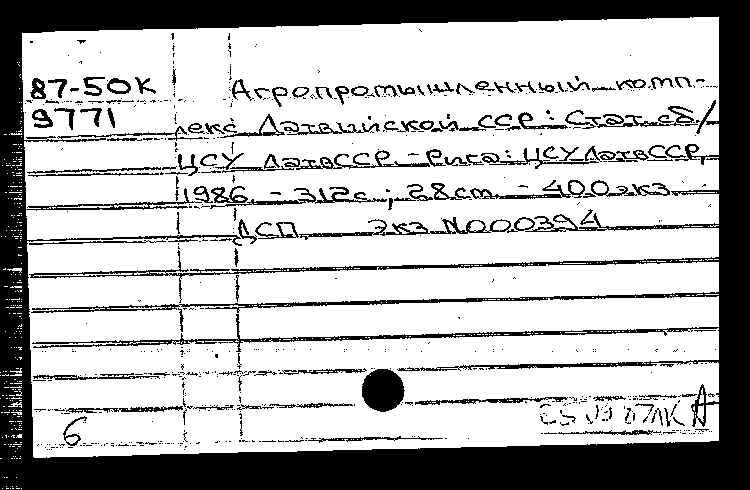 87-50К Агропромышленный комп-
9771 лекс Латвийской ССР: Стат. сб/
ЦСУ ЛатвССР.-Рига: ЦСУ ЛатвССР,
1986. - 312с.; 28см. - 400экз.
ДСП. Экз N000394
6
А